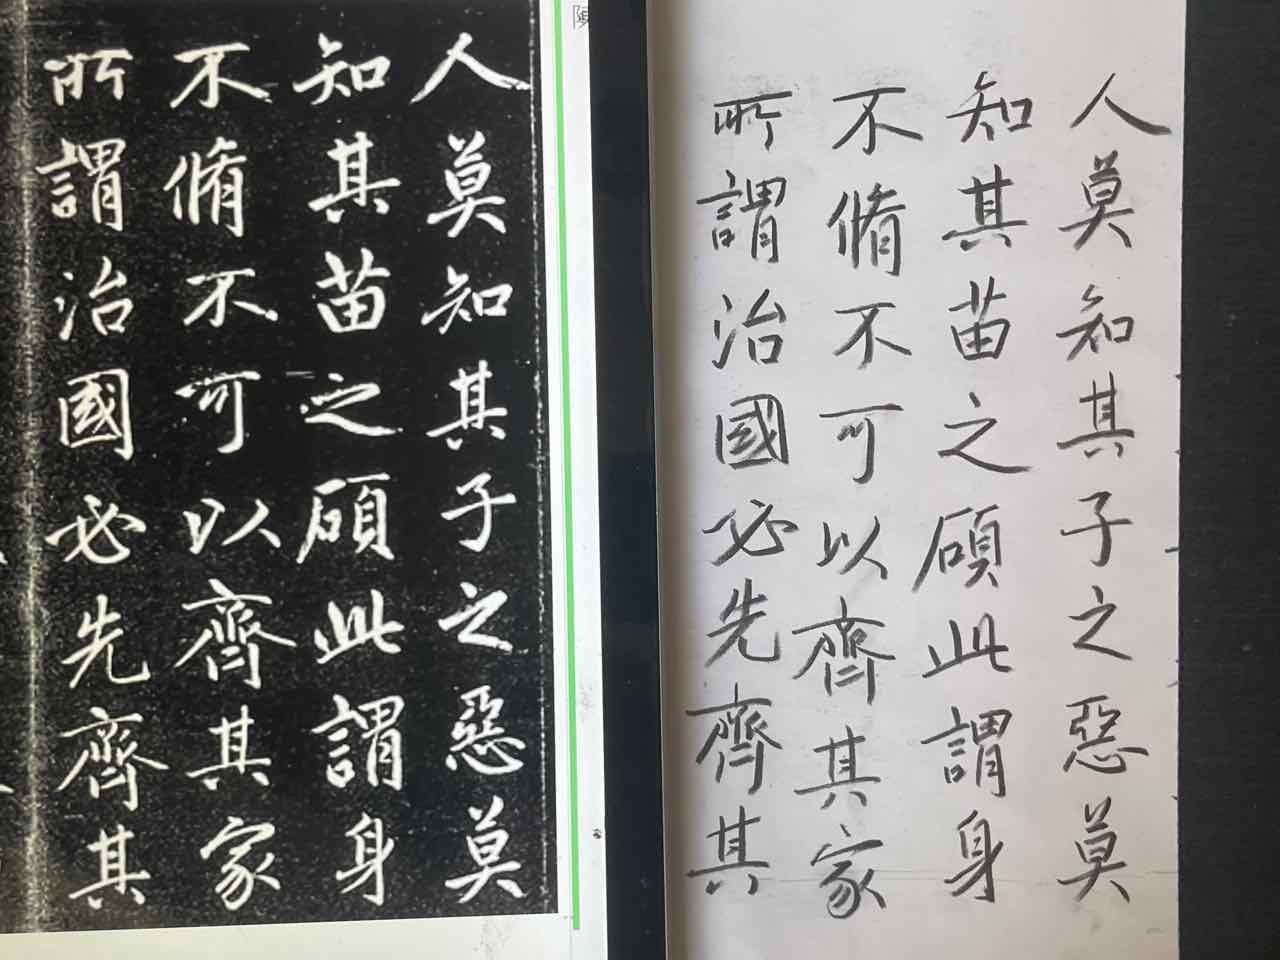 人莫知其子之惡莫
知其苗之碩此謂身
不脩不可以齊其家
所謂治國必先齊其
人莫知其子之惡莫
知其苗之碩此謂身
不脩不可以齊其家
所謂治國必先齊其